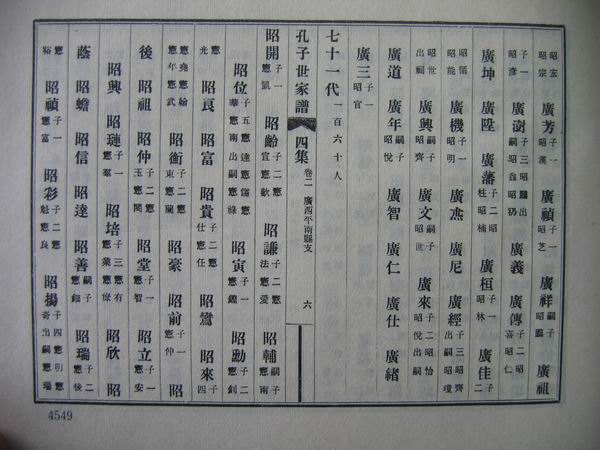 昭宏 昭宗 廣芳 子一昭漢 廣禎 子一昭芝 廣祥 嗣子昭鵬 廣祖
子一昭彥 廣澍 子三昭 出嗣昭 廣義 廣傳 子二昭喜昭仁
廣坤 昭領昭能 廣陞 廣藩 子二昭桂昭楠 廣桓 子一昭林 廣佳 子二
廣機 子一昭明 廣燕 廣尼 廣經 子三昭齊出嗣昭瓊
昭世出嗣 廣興 嗣子昭齊 廣文 嗣子昭世 廣來 子二昭怡昭悅出嗣
廣道 廣年 嗣子昭悅 廣智 廣仁 廣仕 廣緒
廣三 子一昭官
七十一代 一百六十人
孔子世家譜 四集 卷二 廣西平南縣支 六
昭開 子一憲凱 昭齡 子二憲宜憲歆 昭謙 子二憲法憲愛 昭輔 嗣子憲南
昭位 子五憲達憲儒憲華憲南出嗣憲祿 昭寅 子一憲鐘 昭勳 子二憲釗
憲光 昭良 昭富 昭貴 子二憲仕憲任 昭鸞 昭來 子四
憲堯憲綸憲年憲武 昭衡 子二憲東憲蘭 昭豪 昭前 子一憲仲 昭
後 昭祖 昭仲 子二憲玉憲閔 昭堂 子一憲智 昭立 子一憲安
昭興 昭璉 子一憲羣 昭培 子三憲有憲業憲僚 昭欣 昭
蔭 昭蟾 昭信 昭達 昭善 嗣子憲鈿 昭瑞 子二憲後
憲裕 昭禎 子一憲富 昭彩 子二憲魁憲良 昭揚 子四憲明憲奇出嗣憲瑞
4549